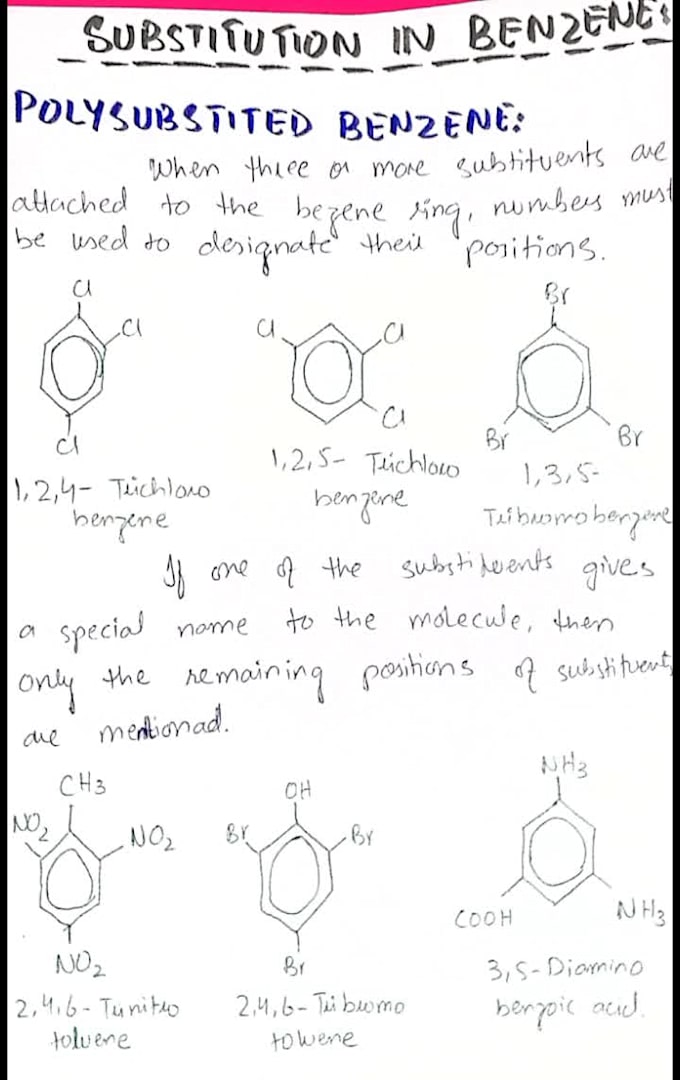 SUBSTITUTION IN BENZENE:
POLYSUBSTITED BENZENE:
When three or more substituents are
attached to the bezene ring, numbers must
be used to designate their positions.
Cl
Cl
Cl
1,2,4- Trichloro
benzene
Cl
Cl
Cl
1,2,5- Trichloro
benzene
Br
Br
Br
1,3,5-
Tribromobenzene
If one of the substituents gives
a special name to the molecule, then
only the remaining positions of substituents
are mentionad.
CH3
NO2
NO2
NO2
2,4,6- Trinitro
toluene
OH
Br
Br
Br
2,4,6- Tribromo
toluene
NH3
COOH
NH3
3,5-Diamino
benzoic acid.